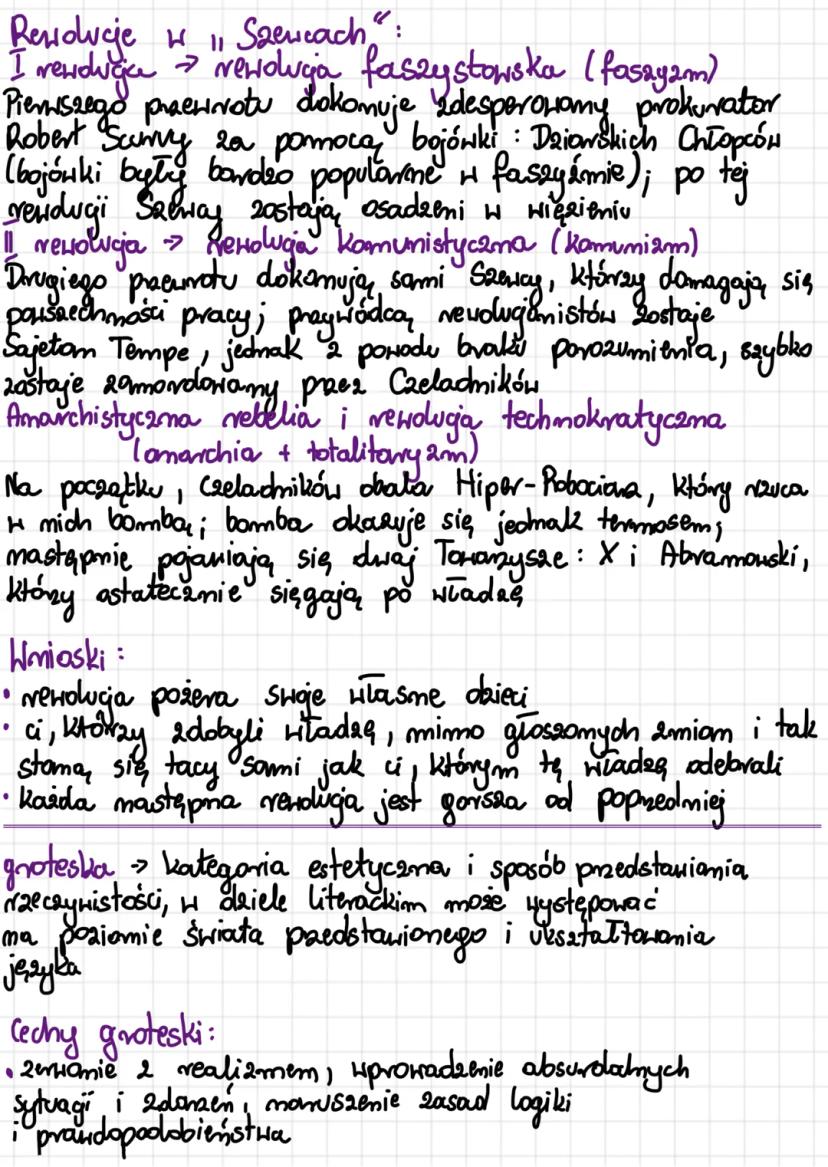 Rewolucje w „Szewcach":
I rewolucja → rewolucja faszystowska (faszyzm)
Pierwszego przewrotu dokonuje zdesperowany prokurator
Robert Scurvy za pomocą bojówki: Dziarskich Chłopców
(bojówki były bardzo popularne w faszyźmie); po tej
rewolucji Szewcy zostają osadzeni w więzieniu
II rewolucja → rewolucja komunistyczna (komunizm)
Drugiego przewrotu dokonują sami Szewcy, którzy domagają się
powszechności pracy; przywódcą rewolucjonistów zostaje
Sajetan Tempe, jednak z powodu braku porozumienia, szybko
zostaje zamordowany przez Czeladników
Anarchistyczna rebelia i rewolucja technokratyczna
(anarchia + totalitaryzm)
Na początku, Czeladników obala Hiper-Robociarz, który rzuca
w nich bombą; bomba okazuje się jednak termosem;
następnie pojawiają się dwaj Towarzysze: X i Abramowski,
którzy ostatecznie sięgają po władzę
Wnioski:
• rewolucja pożera swoje własne dzieci
• ci, którzy zdobyli władzę, mimo głoszonych zmian i tak
staną się tacy sami jak ci, którym tę władzę odebrali
• każda następna rewolucja jest gorsza od poprzedniej
groteska → kategoria estetyczna i sposób przedstawiania
rzeczywistości, w dziele literackim może występować
na poziomie świata przedstawionego i ukształtowania
języka
Cechy groteski:
• zerwanie z realizmem, wprowadzenie absurdalnych
sytuacji i zdarzeń, naruszenie zasad logiki
i prawdopodobieństwa